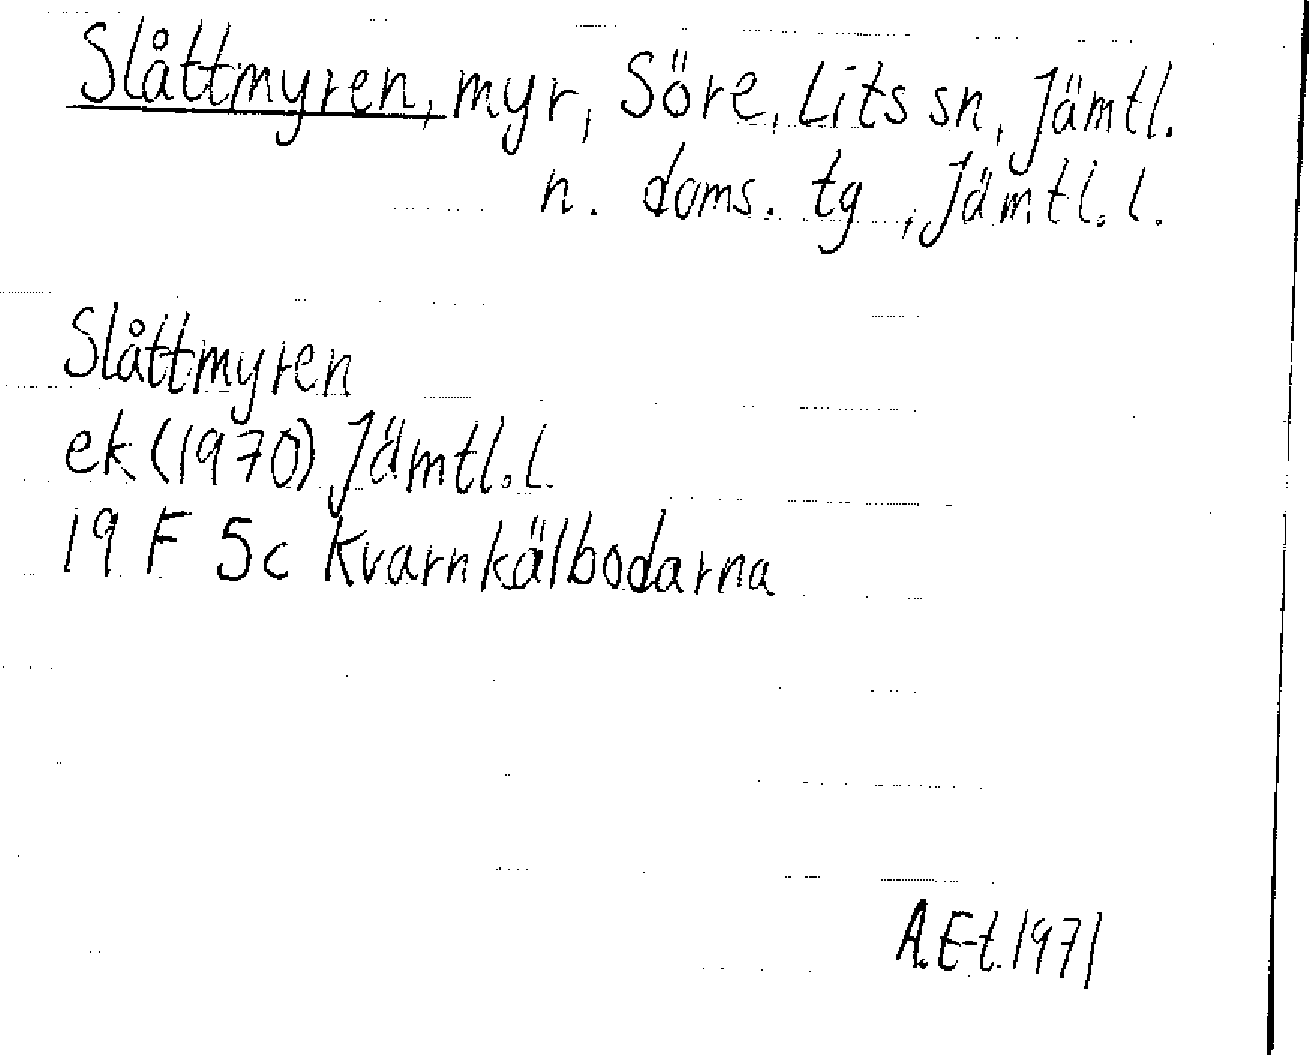 Slåttmyren, myr, Söre, Lits sn, Jämtl.
n. doms. tg, Jämtl. l.
Slåttmyren
ek (1970) Jämtl. l.
19 F 5c Kvarnkälbodarna
A. E-t. 1971